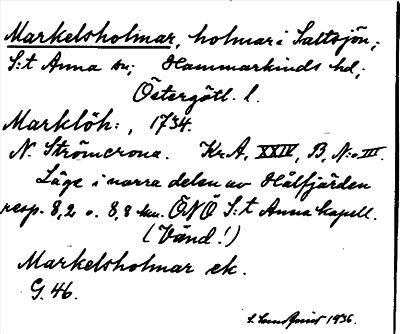 Markelsholmar, holmar i Saltsjön;
S:t Anna sn; Hammarkinds hd;
Östergötl. l.
Marklöh:, 1734.
N. Strömcrona. Kr.A, XXIV, B, N:o III.
Läge i norra delen av Hålfjärden
resp. 8,2 o. 8,8 km. ÖNÖ S:t Anna kapell.
(Vänd!)
Markelsholmar ek.
G. 46.
1936.